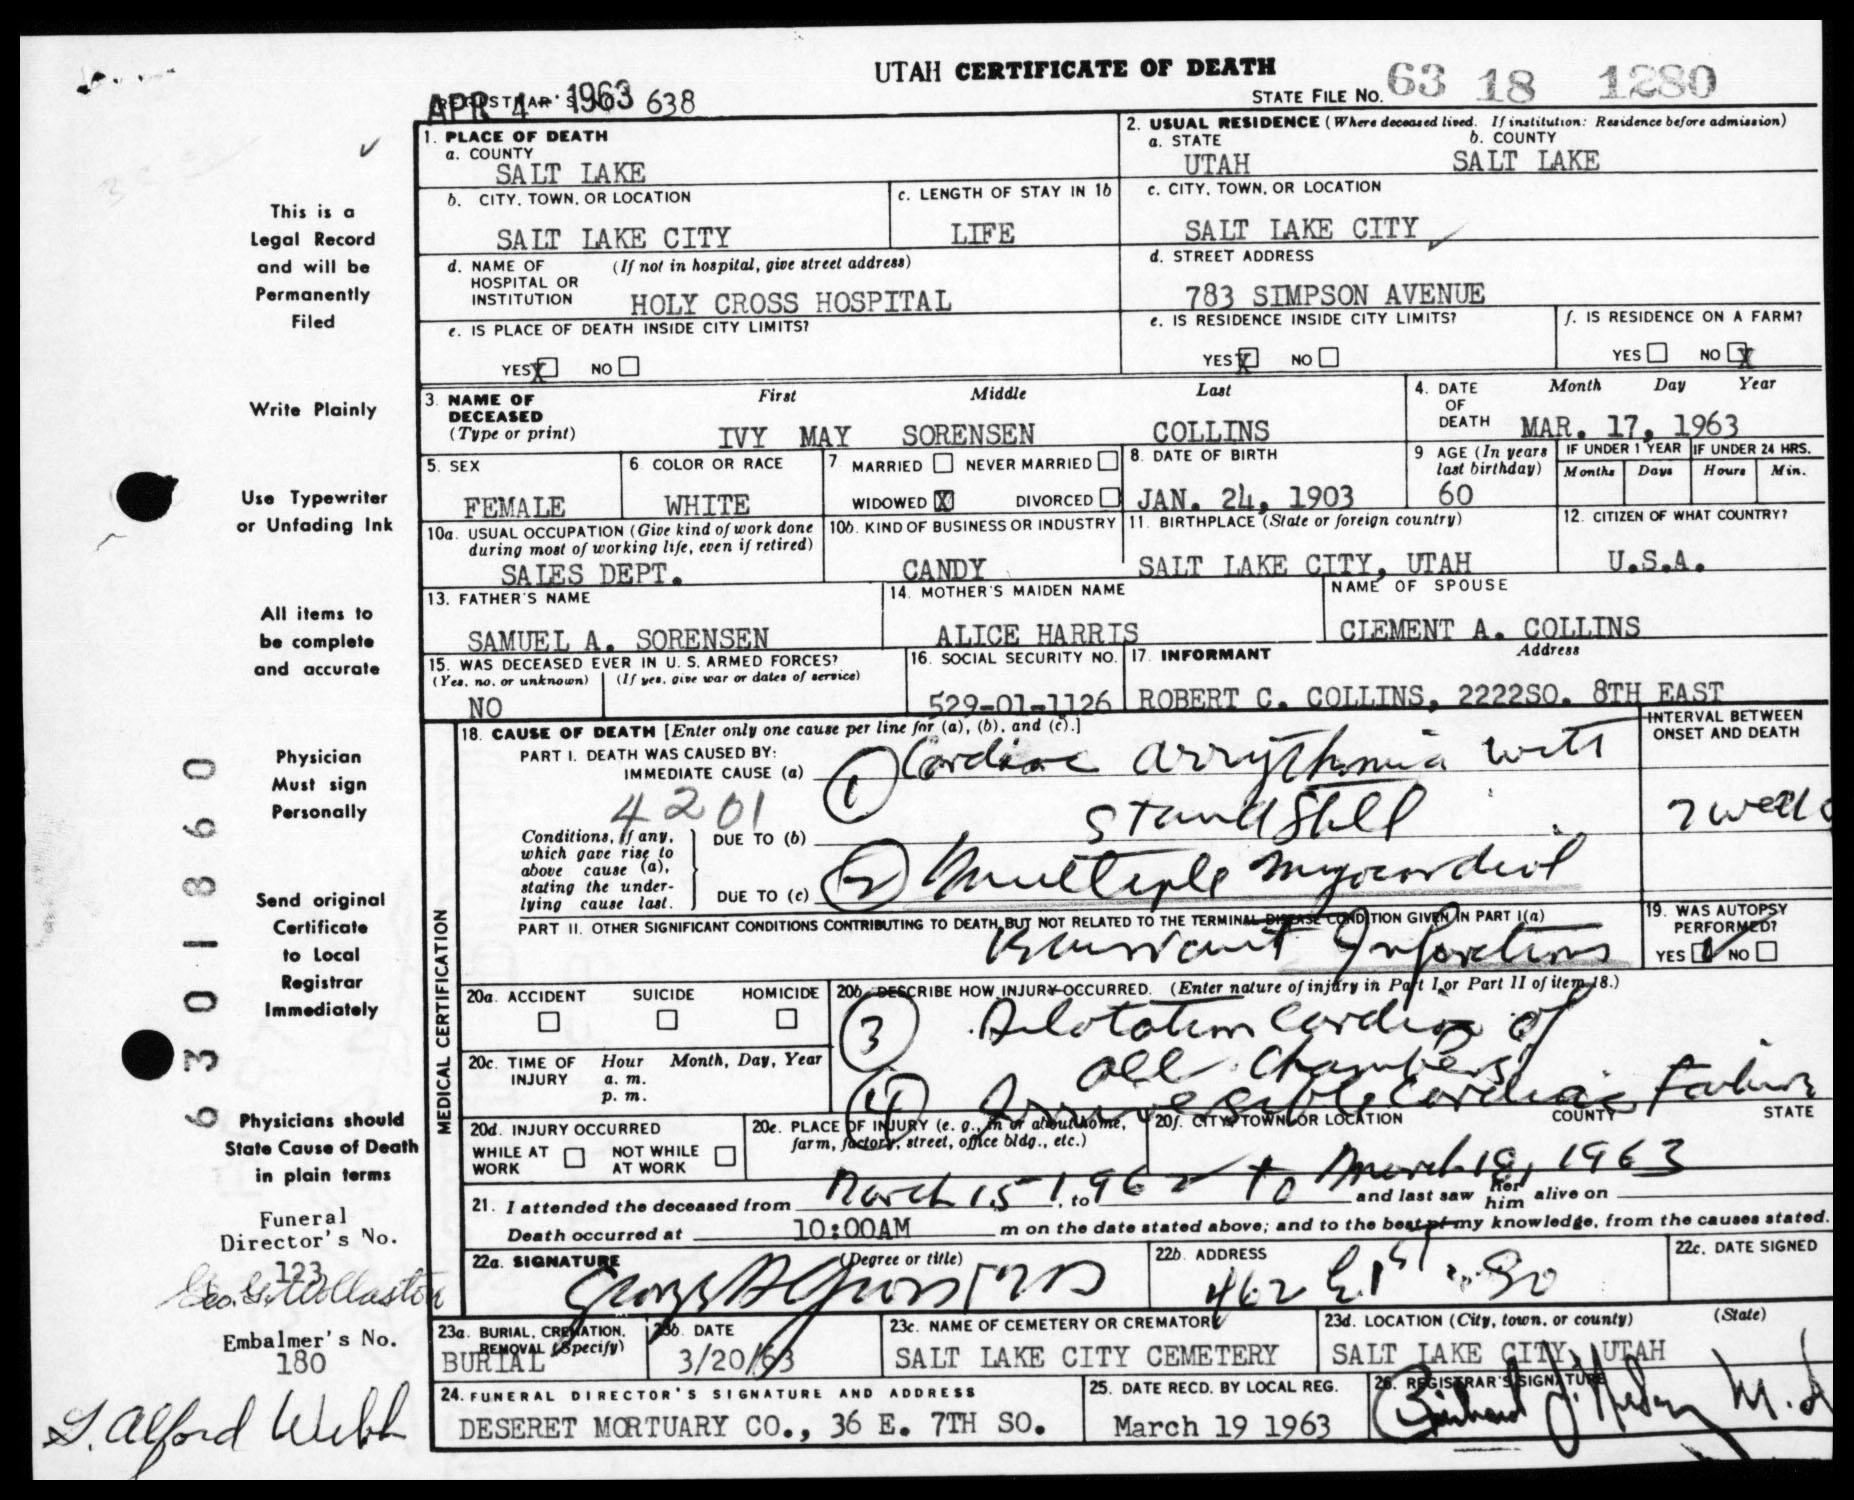 UTAH CERTIFICATE OF DEATH
STATE FILE NO. 63 18 1280
REGISTRAR'S NO. 638
APR 4 1963
1. PLACE OF DEATH
a. COUNTY
SALT LAKE
2. USUAL RESIDENCE (Where deceased lived. If institution: Residence before admission)
a. STATE b. COUNTY
UTAH SALT LAKE
b. CITY, TOWN, OR LOCATION
SALT LAKE CITY
c. LENGTH OF STAY IN 1b
LIFE
c. CITY, TOWN, OR LOCATION
SALT LAKE CITY
d. NAME OF HOSPITAL OR INSTITUTION (If not in hospital, give street address)
HOLY CROSS HOSPITAL
d. STREET ADDRESS
783 SIMPSON AVENUE
e. IS PLACE OF DEATH INSIDE CITY LIMITS?
YES X NO
e. IS RESIDENCE INSIDE CITY LIMITS?
YES X NO
f. IS RESIDENCE ON A FARM?
YES NO X
3. NAME OF DECEASED (Type or print)
First Middle Last
IVY MAY SORENSEN COLLINS
4. DATE OF DEATH Month Day Year
MAR. 17, 1963
5. SEX
FEMALE
6. COLOR OR RACE
WHITE
7. MARRIED NEVER MARRIED
WIDOWED X DIVORCED
8. DATE OF BIRTH
JAN. 24, 1903
9. AGE (In years last birthday)
60
IF UNDER 1 YEAR
Months Days
IF UNDER 24 HRS.
Hours Min.
10a. USUAL OCCUPATION (Give kind of work done during most of working life, even if retired)
SALES DEPT.
10b. KIND OF BUSINESS OR INDUSTRY
CANDY
11. BIRTHPLACE (State or foreign country)
SALT LAKE CITY, UTAH
12. CITIZEN OF WHAT COUNTRY?
U.S.A.
13. FATHER'S NAME
SAMUEL A. SORENSEN
14. MOTHER'S MAIDEN NAME
ALICE HARRIS
NAME OF SPOUSE
CLEMENT A. COLLINS
15. WAS DECEASED EVER IN U. S. ARMED FORCES?
(Yes, no, or unknown) (If yes, give war or dates of service)
NO
16. SOCIAL SECURITY NO.
529-01-1126
17. INFORMANT Address
ROBERT C. COLLINS, 2222SO. 8TH EAST
MEDICAL CERTIFICATION
18. CAUSE OF DEATH [Enter only one cause per line for (a), (b), and (c).]
INTERVAL BETWEEN ONSET AND DEATH
PART I. DEATH WAS CAUSED BY:
IMMEDIATE CAUSE (a) (1) Cardiac arrythmia with
4201
Conditions, if any, which gave rise to above cause (a), stating the underlying cause last.
DUE TO (b) standstill 2 weeks
DUE TO (c) (2) Multiple myocardial
PART II. OTHER SIGNIFICANT CONDITIONS CONTRIBUTING TO DEATH BUT NOT RELATED TO THE TERMINAL DISEASE CONDITION GIVEN IN PART I(a)
Infarctions
19. WAS AUTOPSY PERFORMED?
YES ✓ NO
20a. ACCIDENT SUICIDE HOMICIDE
20b. DESCRIBE HOW INJURY OCCURRED. (Enter nature of injury in Part I or Part II of item 18.)
(3) Dilatation Cardiac of
all Chambers
(4) Irreversible Cardiac Failure
20c. TIME OF INJURY Hour Month, Day, Year
a. m.
p. m.
20d. INJURY OCCURRED
WHILE AT WORK NOT WHILE AT WORK
20e. PLACE OF INJURY (e. g., in or about home, farm, factory, street, office bldg., etc.)
20f. CITY, TOWN, OR LOCATION COUNTY STATE
21. I attended the deceased from March 15, 1962 to March 18, 1963, to and last saw her him alive on
Death occurred at 10:00AM m on the date stated above; and to the best of my knowledge, from the causes stated.
22a. SIGNATURE (Degree or title)
22b. ADDRESS
462 E. 1st So
22c. DATE SIGNED
23a. BURIAL, CREMATION, REMOVAL (Specify)
BURIAL
23b. DATE
3/20/63
23c. NAME OF CEMETERY OR CREMATORY
SALT LAKE CITY CEMETERY
23d. LOCATION (City, town, or county) (State)
SALT LAKE CITY, UTAH
24. FUNERAL DIRECTOR'S SIGNATURE AND ADDRESS
DESERET MORTUARY CO., 36 E. 7TH SO.
25. DATE RECD. BY LOCAL REG.
March 19 1963
26. REGISTRAR'S SIGNATURE
This is a
Legal Record
and will be
Permanently
Filed
Write Plainly
Use Typewriter
or Unfading Ink
All items to
be complete
and accurate
Physician
Must sign
Personally
Send original
Certificate
to Local
Registrar
Immediately
Physicians should
State Cause of Death
in plain terms
6301860
Funeral
Director's No.
123
Geo. G. Wollaston
Embalmer's No.
180
S. Alford Webb